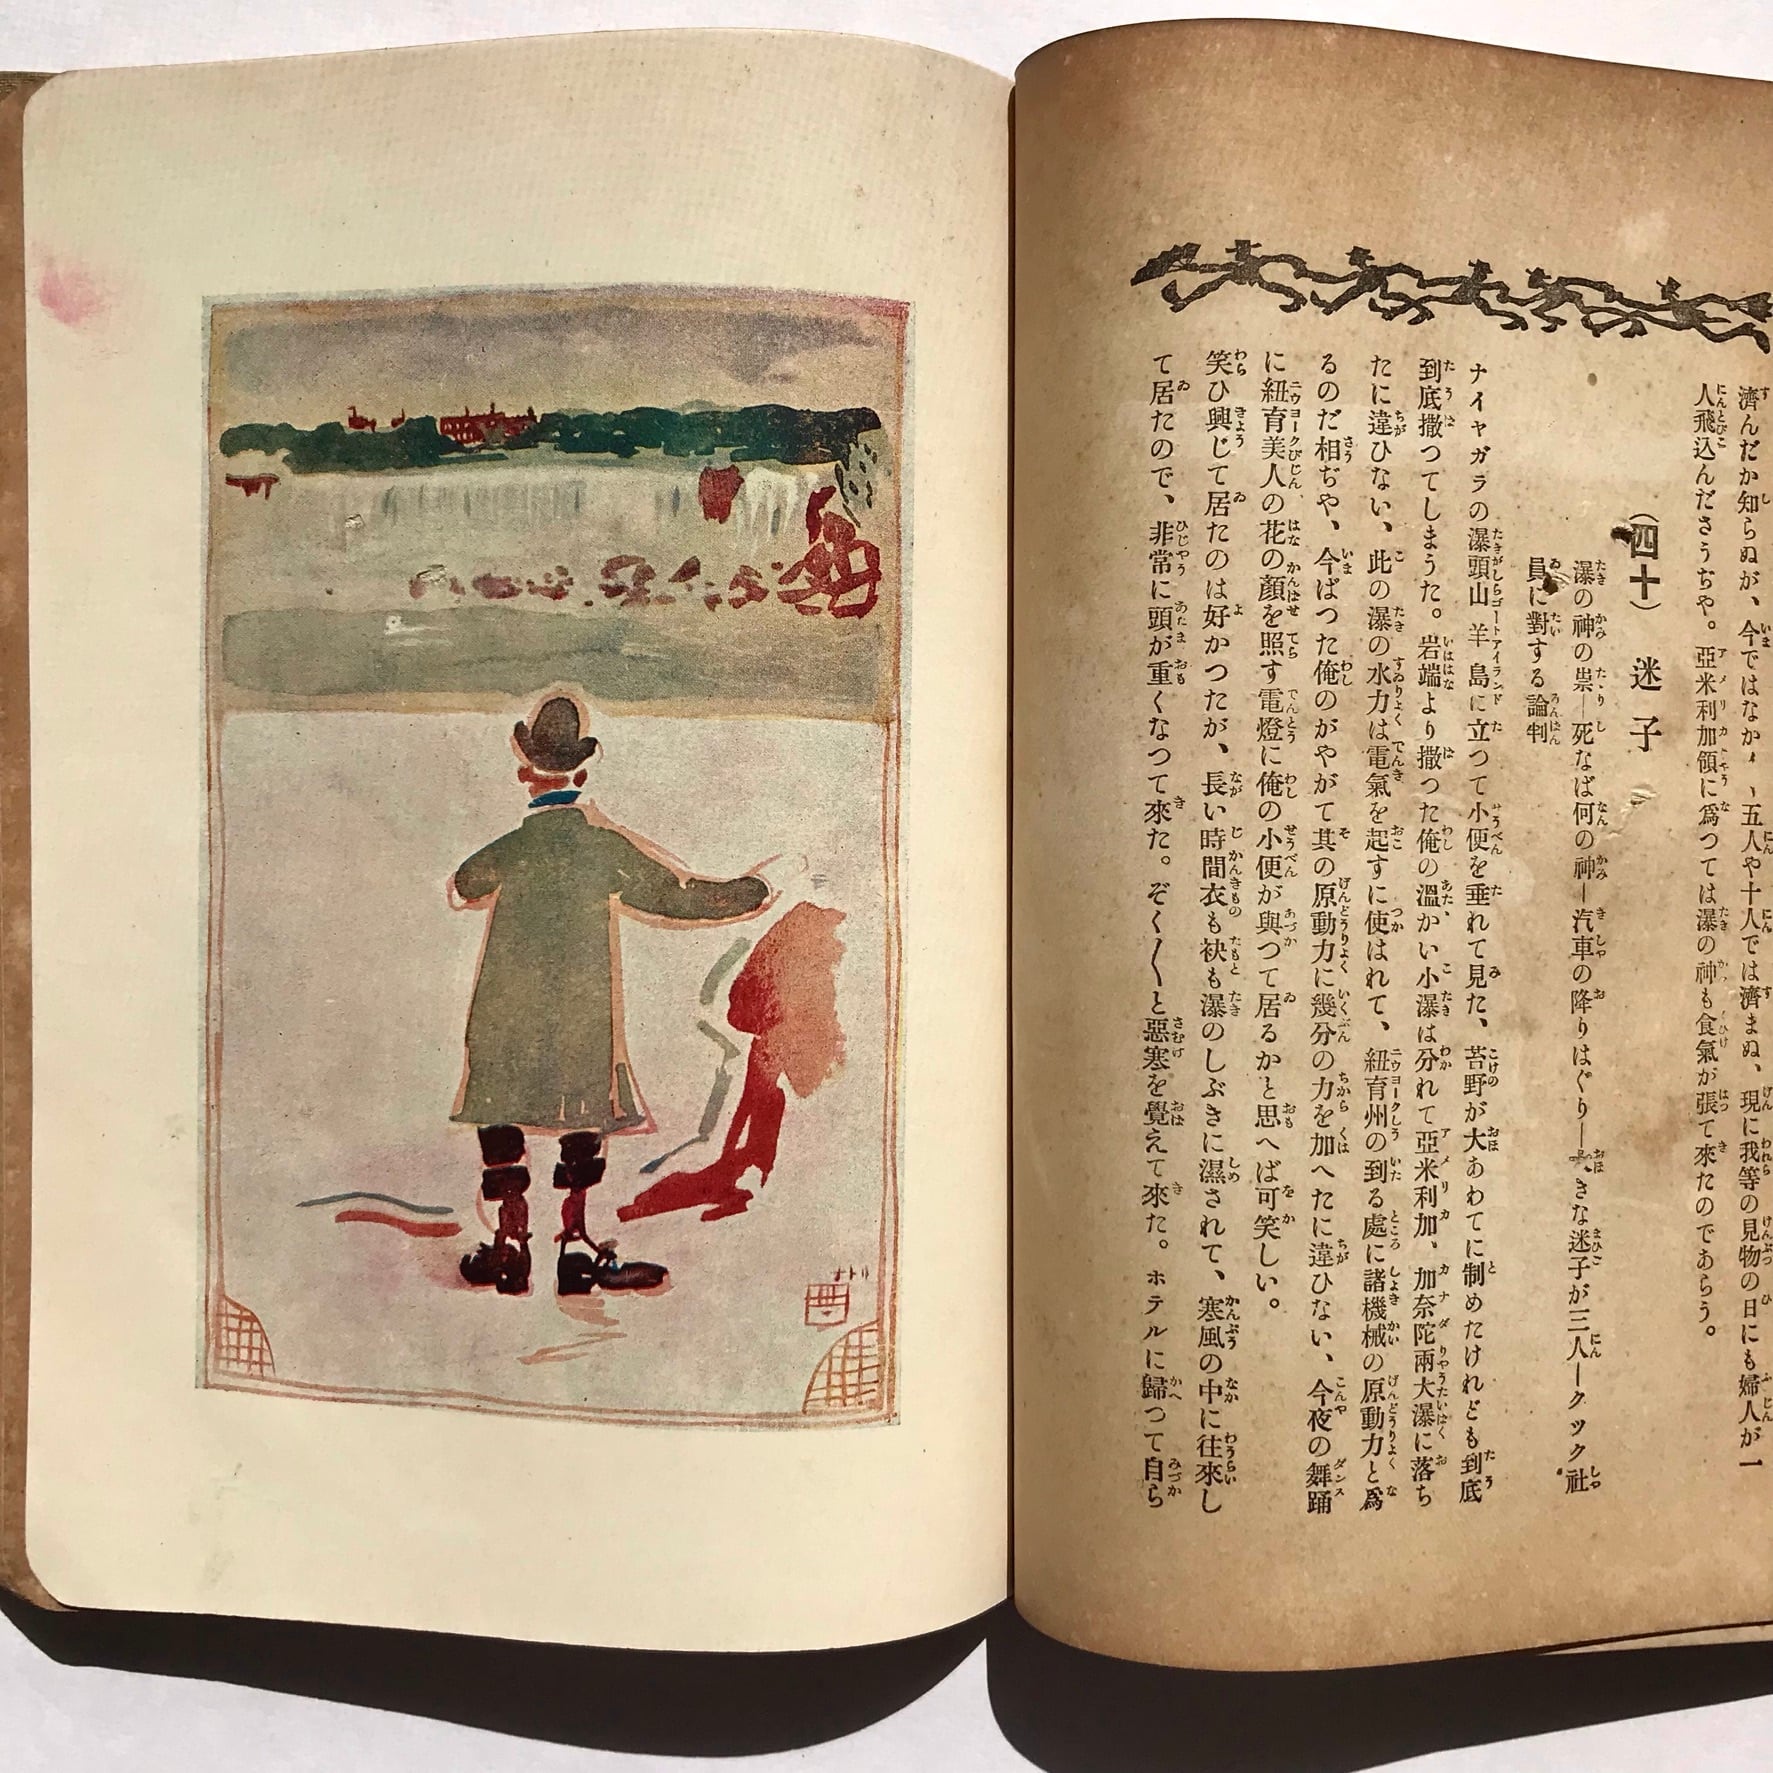 濟んだか知らぬが、今ではなか、、五人や十人では濟まぬ、現に我等の見物の日にも婦人が一
人飛込んださうぢや。亞米利加領に爲つては瀑の神も食氣が張て來たのであらう。
(四十) 迷子
瀑の神の祟—死なば何の神—汽車の降りはぐり—大きな迷子が三人—クック社
員に對する論判
ナイヤガラの瀑頭山羊島に立つて小便を垂れて見た、苔野が大あわてに制めたけれども到底
到底撒つてしまうた。岩端より撒つた俺の溫かい小瀑は分れて亞米利加、加奈陀兩大瀑に落ち
たに違ひない、此の瀑の水力は電氣を起すに使はれて、紐育州の到る處に諸機械の原動力と爲
るのだ相ぢや、今ばつた俺のがやがて其の原動力に幾分の力を加へたに違ひない、今夜の舞踊
に紐育美人の花の顔を照す電燈に俺の小便が與つて居るかと思へば可笑しい。
笑ひ興じて居たのは好かつたが、長い時間衣も袂も瀑のしぶきに濕されて、寒風の中に往來し
て居たので、非常に頭が重くなつて來た。ぞく〱と惡寒を覺えて來た。ホテルに歸つて自ら
ナトリ